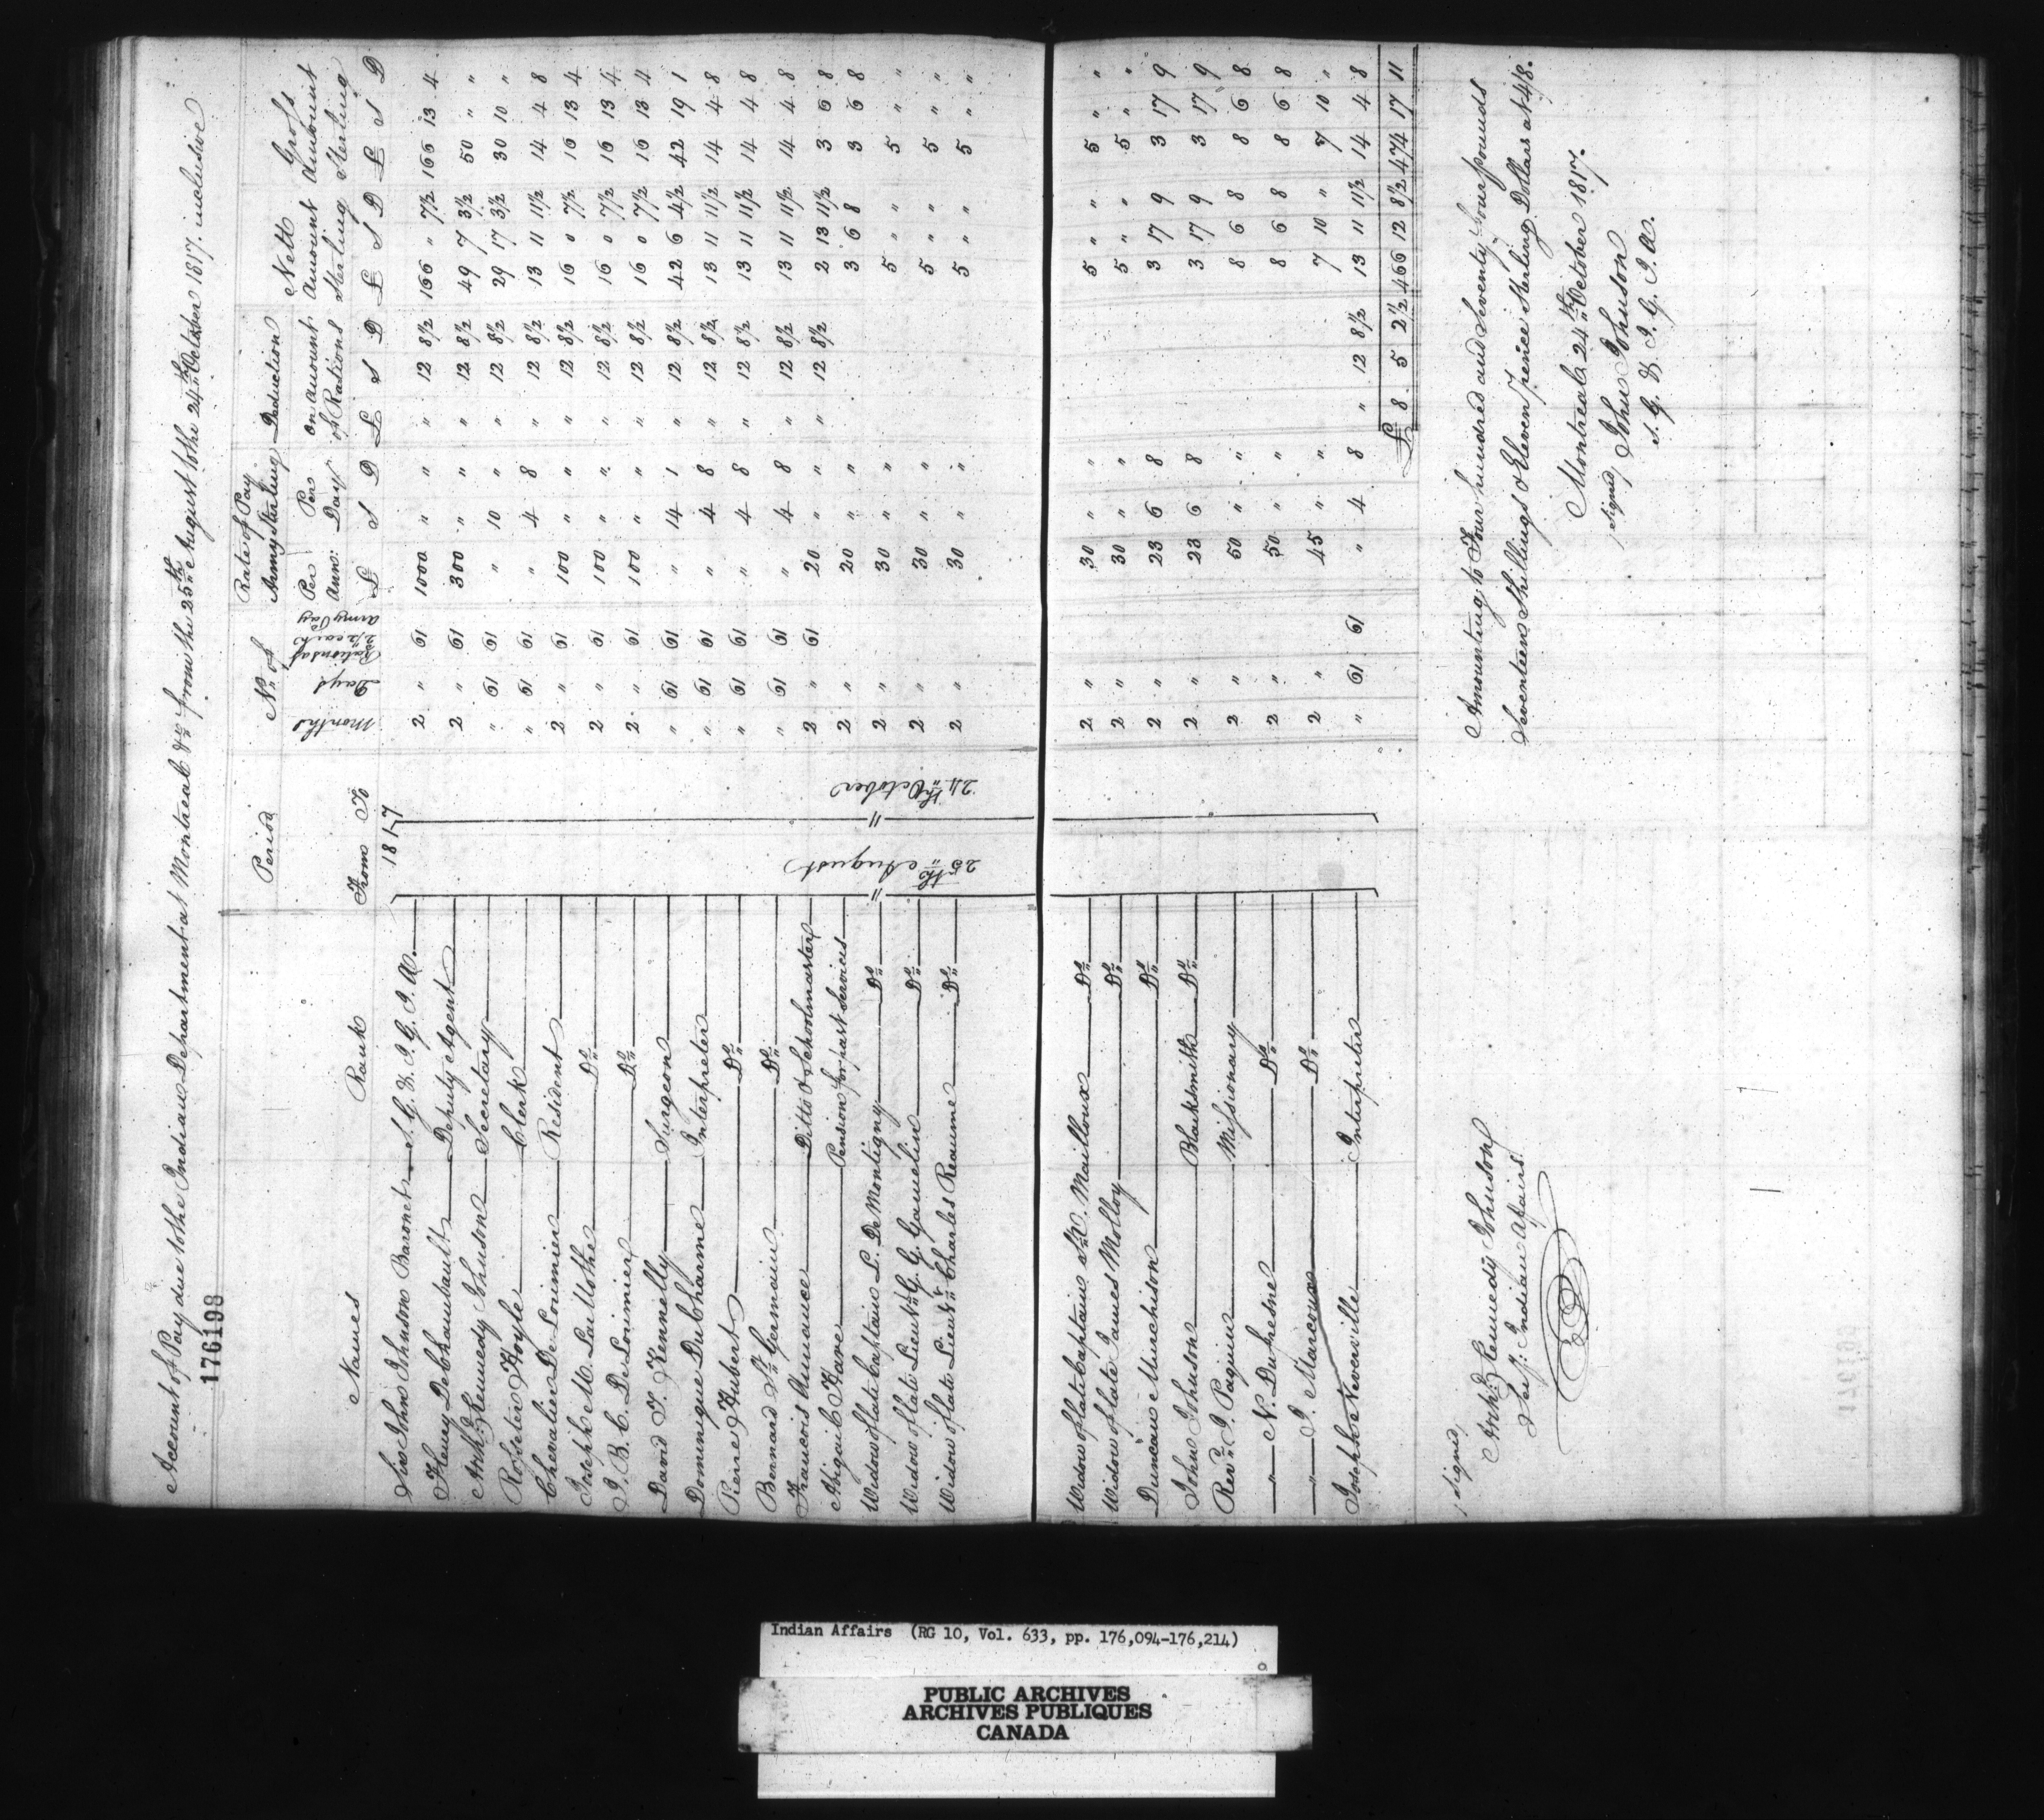 Account of Pay due to the Indian Department at Montreal &ca from the 25th August to the 24th October 1817. inclusive
176198
Names Rank Period No. of Rate of Pay Army Sterling Deduction on Account of Rations Nett Amount Sterling Gross Amount Sterling
From To Months Days Rations at 2½d each Army Pay Per Ann: Per Day
£ S D £ S D £ S D £ S D
1817
25th August
24th October
Sir John Johnson Baronet S. G. & I. G. I. A. 2 " 61 1000 " " " 12 8½ 166 " 7½ 166 13 4
Henry De Chambault Deputy Agent 2 " 61 300 " " " 12 8½ 49 7 3½ 50 " "
Archd. Kennedy Johnson Secretary " 61 61 " 10 " " 12 8½ 29 17 3½ 30 10 "
Robert Hoyle Clerk " 61 61 " 4 8 " 12 8½ 13 11 11½ 14 4 8
Chevalier De Lorimier Resident 2 " 61 100 " " " 12 8½ 16 0 7½ 16 13 4
Joseph M. La Mothe Do. 2 " 61 100 " " " 12 8½ 16 0 7½ 16 13 4
J. B. C. De Lorimier Do. 2 " 61 100 " " " 12 8½ 16 0 7½ 16 13 4
David T. Kennelly Surgeon " 61 61 " 14 1 " 12 8½ 42 6 4½ 42 19 1
Dominique Du Charme Interpreter " 61 61 " 4 8 " 12 8½ 13 11 11½ 14 4 8
Pierre Hubert Do. " 61 61 " 4 8 " 12 8½ 13 11 11½ 14 4 8
Bernard St. Germain Do. " 61 61 " 4 8 " 12 8½ 13 11 11½ 14 4 8
Francois Annance Ditto & Schoolmaster 2 " 61 20 " " " 12 8½ 2 13 11½ 3 6 8
Abigail Hare Pension for past Services 2 " 20 " " 3 6 8 3 6 8
Widow of late Captain L. De Montigny Do. 2 " 30 " " 5 " " 5 " "
Widow of late Lieut. G. G. Gamelin Do. 2 " 30 " " 5 " " 5 " "
Widow of late Lieut. Charles Reaume Do. 2 " 30 " " 5 " " 5 " "
Widow of late Captain Mailloux Do. 2 " 30 " " 5 " " 5 " "
Widow of late James Molloy Do. 2 " 30 " " 5 " " 5 " "
Duncan Murchison Do. 2 " 23 6 8 3 17 9 3 17 9
John Johnson Blacksmith Do. 2 " 23 6 8 3 17 9 3 17 9
Revd. J. Paquin Missionary 2 " 50 " " 8 6 8 8 6 8
" N. Dufresne Do. 2 " 50 " " 8 6 8 8 6 8
" J. Marcoux Do. 2 " 45 " " 7 10 " 7 10 "
Josephe Neverville Interpreter " 61 61 " 4 8 " 12 8½ 13 11 11½ 14 4 8
£ 8 5 2½ 466 12 8½ 474 17 11
Amounting to Four hundred and Seventy four pounds
Seventeen Shillings & Eleven pence Sterling Dollars at 4/8.
Montreal 24th October 1817.
signed/ John Johnson
S. G. & I. G. I. A.
signed/
Archd. Kennedy Johnson
Secy: Indian Affairs
Indian Affairs (RG 10, Vol. 633, pp. 176,094-176,214)
PUBLIC ARCHIVES
ARCHIVES PUBLIQUES
CANADA